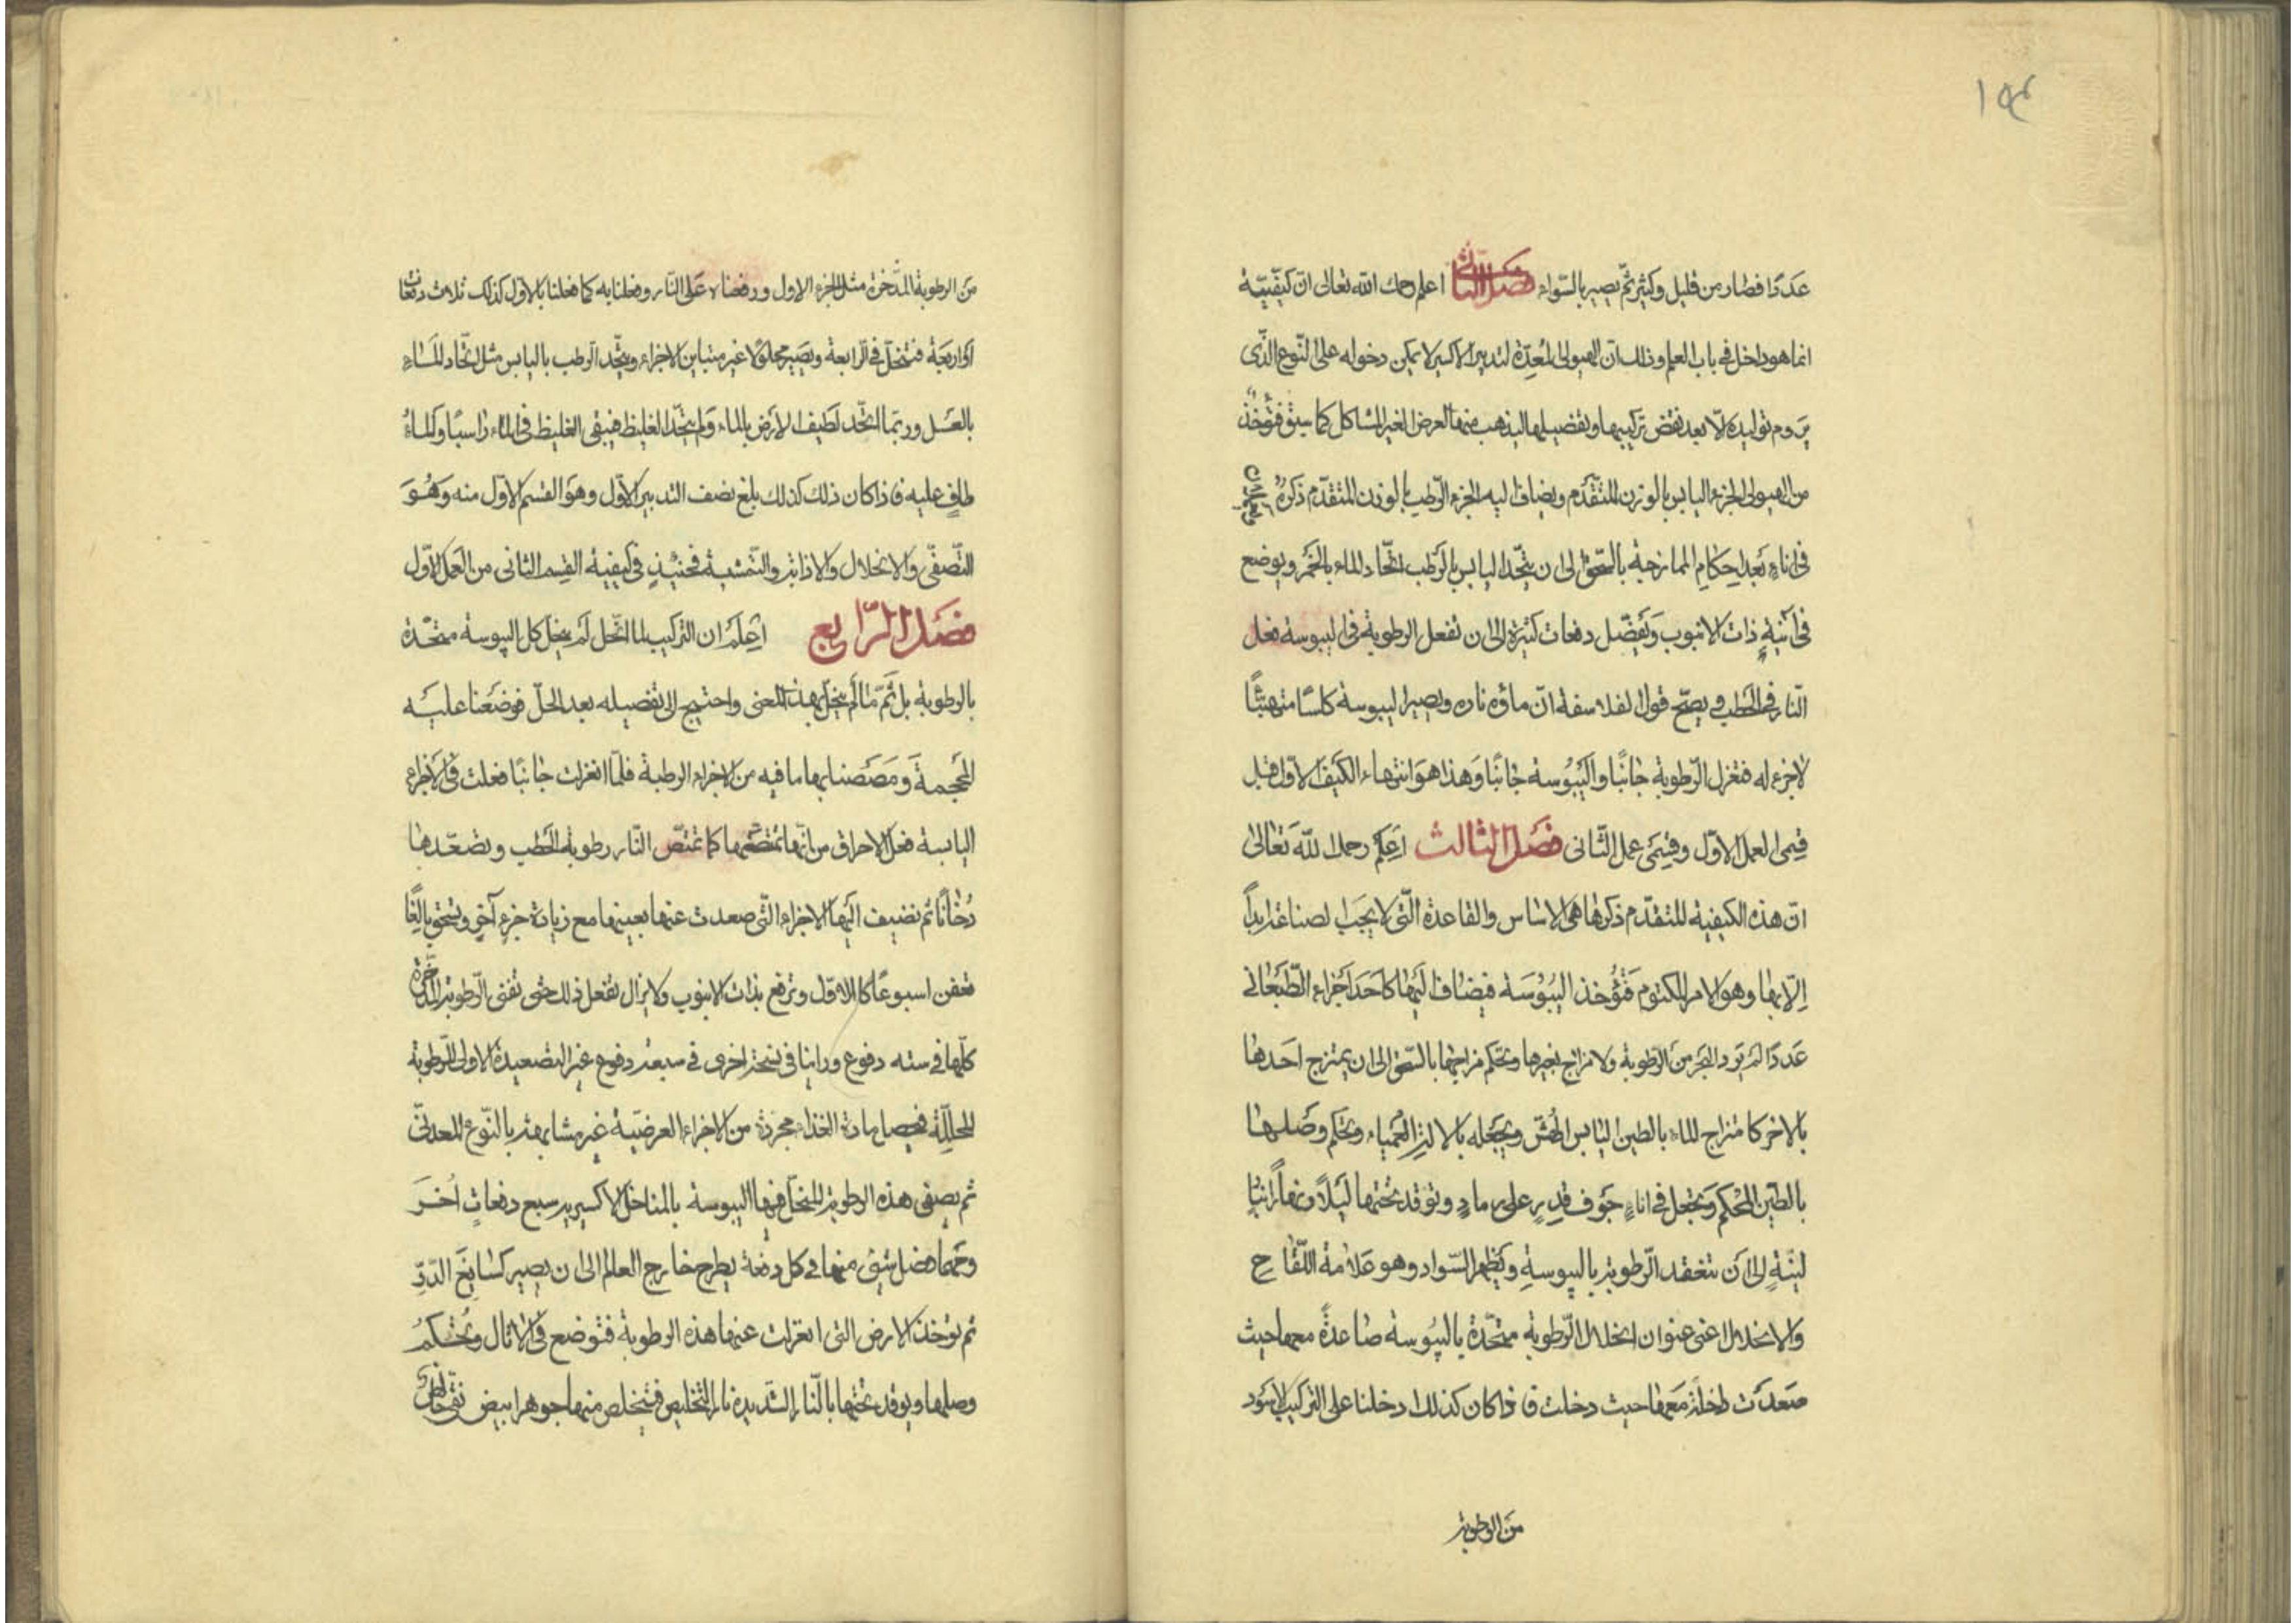 ١٩٤
عَدَدًا فصار من قليل وكثير ثمّ يصير بالسّواء فصل الثانى اعلم رحمك الله تعالى انّ كيفيّة
انما هو داخل فى باب العلم وذلك انّ الهيولى المُعِدّة لتدبير الاكسير لا يمكن دخوله على النّوع الذّى
يروم توليده الّا بعد نقض تركيبها وتفصيلها ليذهب منها العرض الغير المشاكل كما سبق فتُؤخذ
من الهيولى الجزء اليابس بالوزن المتقدّم ويضاف اليه الجزء الرّطب بالوزن المتقدّم ذكرهُ
فى اناءٍ بَعد احكام الممازجة بالسّحق الى ان يتّحد اليابس بالرّطب اتّحاد الماء بالخمر ويوضع
فى آنيةٍ ذات الانبوب وَتفصّل دفعات كثيرة الى ان تفعل الرطوبة فى اليبوسة فعل
النّار فى الحَطب ويصحّ قول الفلاسفة انّ ماؤه ناره ويصير اليبوسة كلسًا متهيّئًا
لا جزء له فتعزل الرّطوبة جانبًا واليَبُوسة جانبًا وَهذا هوَ انتهاء الكيف الاوّل قبل
قيمى العمل الاوّل وقيمَى عمل الثّانى فصل الثالث اعلَم رحمك اللّه تعالى
انّ هذه الكيفية المتقدّم ذكرها هى الاساس والقاعدة الّتى لا يجَب الصناعة ابداً
الّا بها وهو الامر المكتوم فَتُؤخذ اليبُوسَة فيضاف اليها كاحَد اجزاء الطّبعانى
عَددًا لم يَرد الحجر من الرّطوبة ولا مزاج بغيرها ويحكم مزاجها بالسّحق الى ان يمتزج احَدها
بالاخر كامتزاج الماء بالطين اليابس الهشّ ويجعله بالالة العَمياء ويحكم وصَلها
بالطّين المُحكم وَيجعل فى اناءٍ جَوف قدرٍ على رمادٍ وتوقد تحتها لَيلاً ونهارًا
ليّنةٍ الى اَن تنعقد الرّطوبة باليبوسةِ ويظهر السّواد وهو عَلامة اللّقاح
والانحلال اعنى عنوان انحلال الرّطوبة متّحدة باليبُوسة صاعدةً معها حيث
صَعدَت داخلة مَعها حيث دخلت فاذا كان كذلك دخلنا على التركيب الاسَود
من الرطوبة
مَن الرطوبة المدّخرة مثل الجزء الاول ورفعناه عَلى النّار وفعلنا به كما فعلنا بالاوّل كذلك ثلاث دفعَات
اَو اربعَة فتنحَلّ فى الرّابعة ويصَير محلولًا غير متباين الاجزاء ويتّحد الرطب باليابس مثل اتّحاد المَاء
بالعَسل وربّما اتّحد لَطيف الارض بالماء وَلم يتّحد الغليظ فيبقى الغليظ فى الماء رَاسبًا وَالماءُ
طافٍ عليه فاذا كان ذلك كذلك بلغ نصف التدبير الاوّل وهوَ القسم الاوّل منه وَهُوَ
التّصفّى والانحلال والاذابة والتّمشية فحينئذٍ فى كيفية القِسم الثانى من العَمل الاوّل
فصَل الرّابع اعلَم ان التركيب لما انحَل لَم ينحلّ كل اليبوسة متحّدة
بالرطوبة بل ثَمّ مّا لَم ينحلّ بهذا المعنى واحتيج الى تفصيله بعد الحلّ فوضعَنا عليَه
المحجمة وَمصَصنا بها ما فيه من الاجزاء الرطبة فلمّا انعزلت جانبًا فعلت فى الاَجزاء
اليابسة فعل الاحراق من انّها تمتصّها كما تمتصّ النّار رطوبة الحَطب وتصَعّدها
دُخانًا ثم نضيف اليَها الاجزاء الّتى صعدت عنها بعينها مع زيادة جزءٍ آخرٍ ويسَحق بالِغًا
تعفن اسبوعًا كالاوّل وترفع بذات الانبوب ولا يزال تفعل ذلك حتى تفنى الرّطوبة المدّخرة
كلّها فى سته دفوع وراينا فى نسخة اخرى فى سبعة دفوع غير التصعيدة الاولى للرّطوبة
المحلّلة فيحصل مادة الغذاء مجردة من الاجزاء العرضيّة غير مشابهة بالنّوع المعدنّى
ثم يصفى هذه الرطوبة المنحلّ فيها اليبوسة بالمناخل الاكسيرية سبع دفعاتٍ اُخرَ
وَمهما فضل شئ منها فى كل دفعة يطرح خارج العالم الى ان يصير كسَابغ الدّرِّ
ثم توخذ الارض التى انعزلت عنها هذه الرطوبة فتوضع فى الاثال ويُحكمُ
وصلها ويوقد تحتها بالنّار الشّديدة نار التخليص فيتخلص منها جوهرا ابيض نقّى